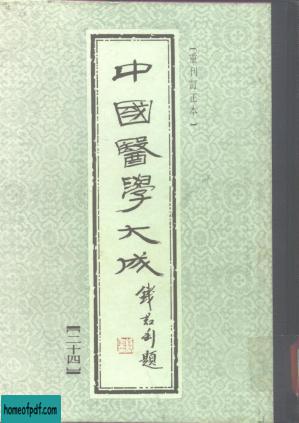 【重刊訂正本】
中國醫學大成
錢君匋題
【二十四】
homeofpdf.com